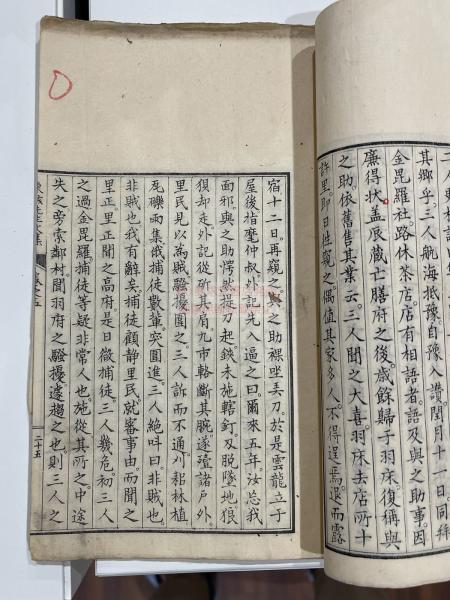 二人
其鄉乎三人航海抵豫自豫入讃閏月十一日同拜
金毘羅社路休茶店店有相語者語及與之助事因
廉得狀蓋辰藏亡膳府之後歳餘歸于羽床復稱與
之助依舊售其業云三人聞之大喜羽床去店所十
許里即日往窺之偶值其家多人不得逞焉退而露
宿十二日再窺之與之助裸坐弄刀於是雲龍立于
屋後指麾仲叔外記先入逼之曰爾來五年汝忘我
面邪與之助愕然提刀起鋏未施轄釘及脫墜地狼
狽却走外記從斫其肩九市輅斷其腕遂殪諸戶外
里民見以為賊騷擾圍之三人訴而不通刈稻林植
瓦礫雨集戲捕徒數輩突圍進三人絕叫曰非賊也
非賊也我有辭矣捕徒顧靜里民就審事由而聞之
里正里正聞之高府是日微捕徒三人幾危初三人
之過金毘羅捕徒等疑非常人也施從其所之中途
失之旁索鄰村聞羽府之騷擾遽趨之也則三人之
二十五